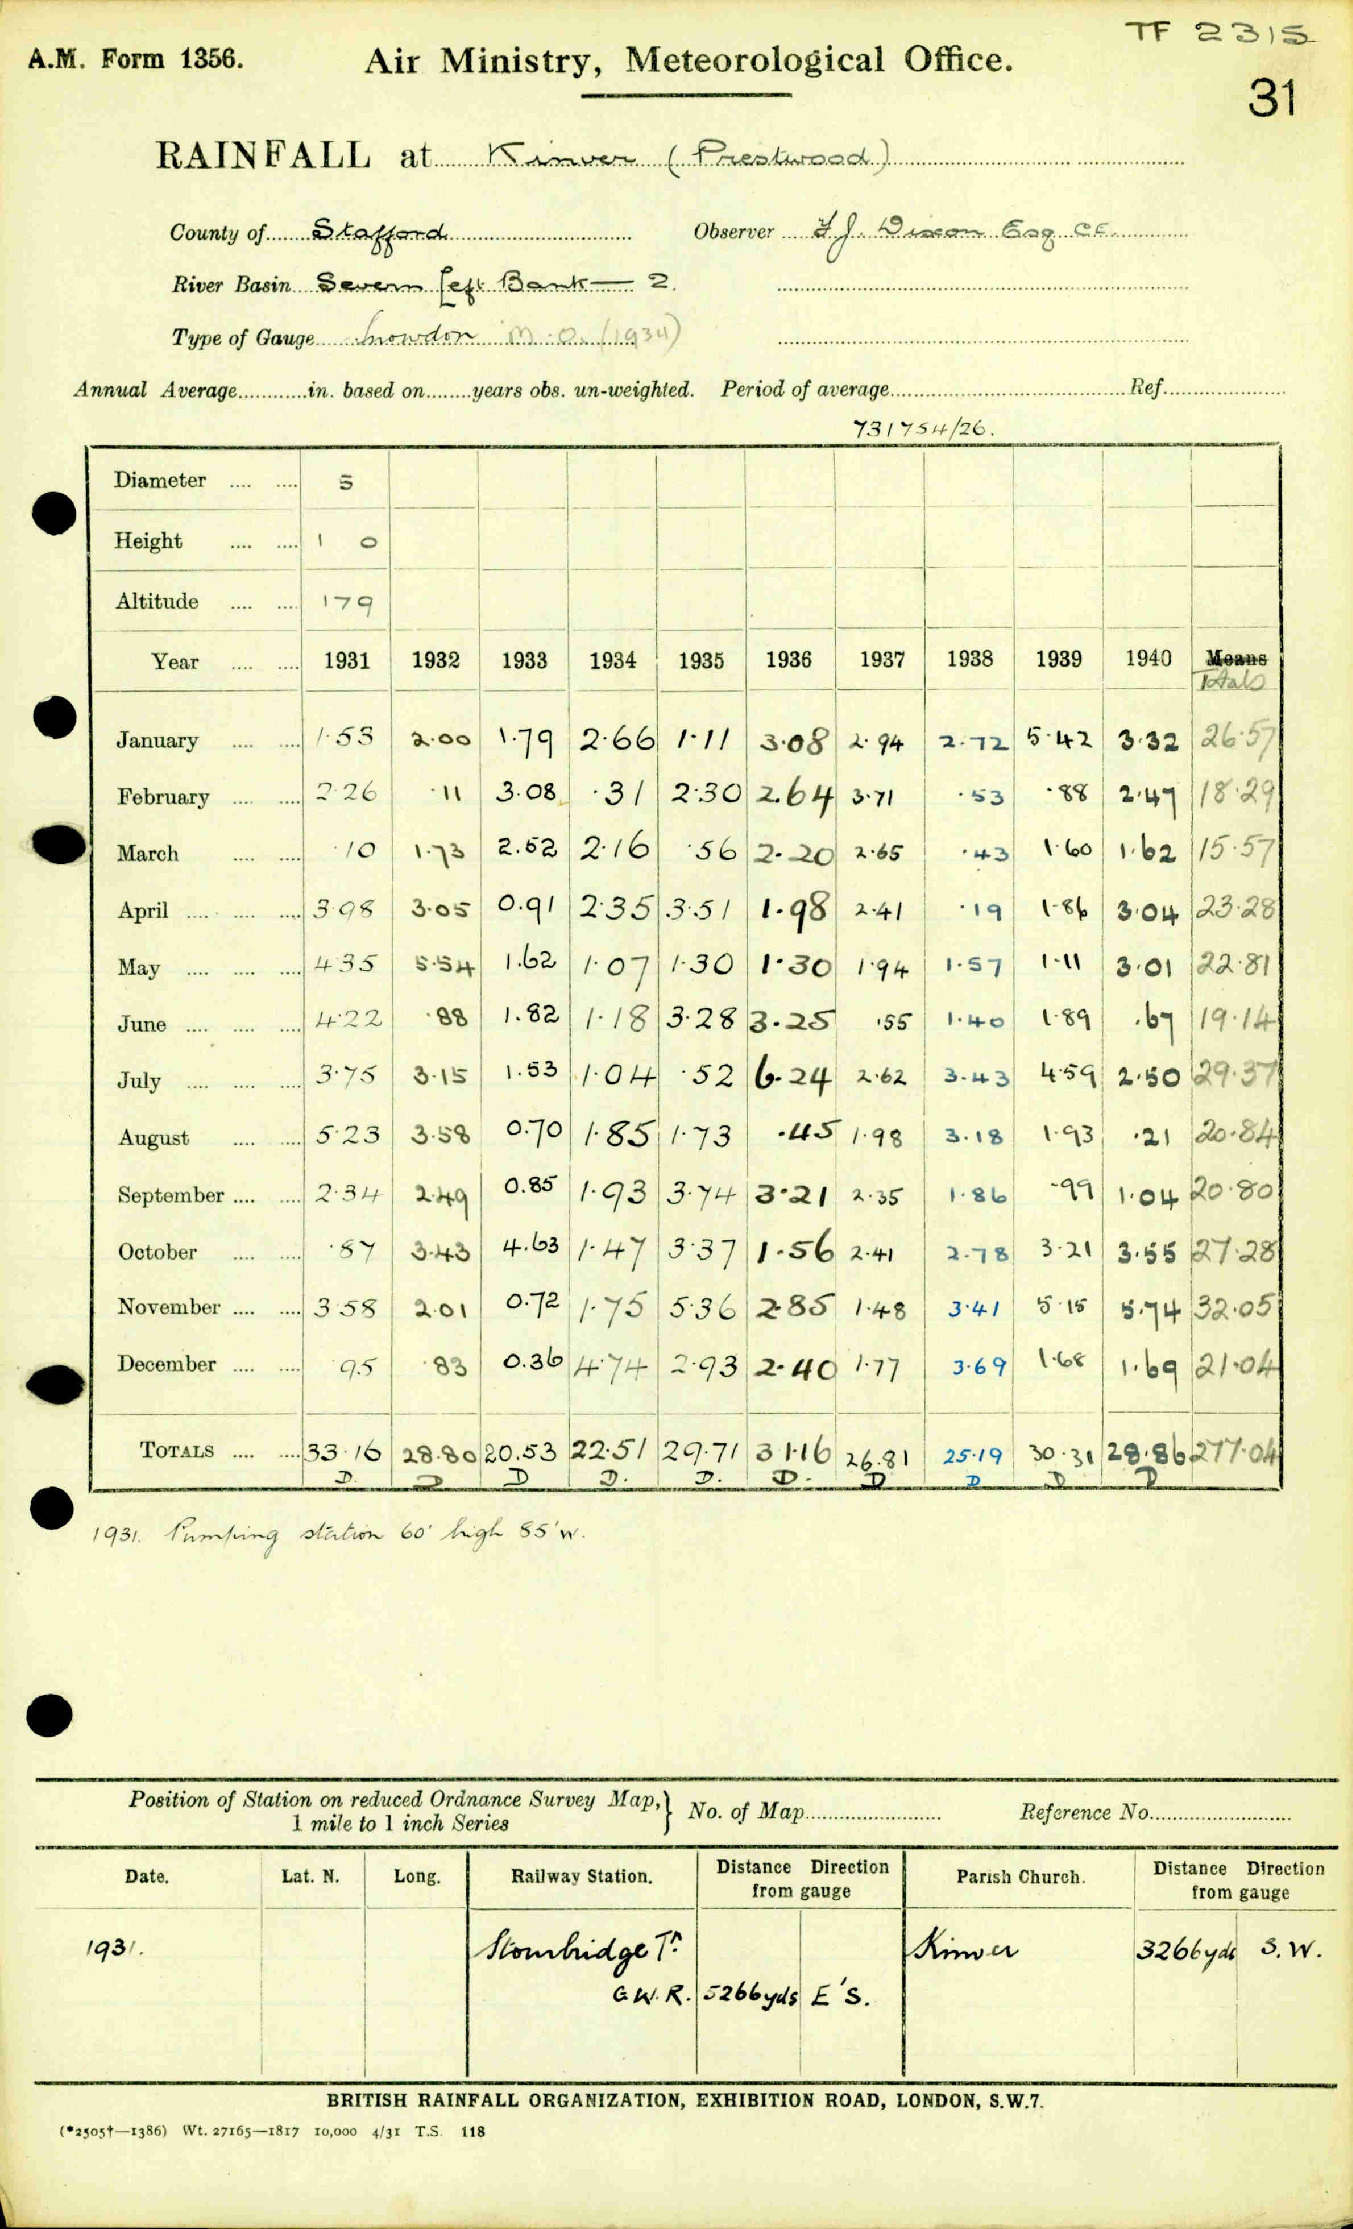 TF 2315
A.M. Form 1356. Air Ministry, Meteorological Office.
31
RAINFALL at Kinver (Prestwood)
County of Stafford Observer F.J. Dixon Esq C.E.
River Basin Severn Left Bank — 2.
Type of Gauge Snowdon M.O. (1934)
Annual Average in. based on years obs. un-weighted. Period of average Ref.
731754/26.
Diameter 5
Height 1 0
Altitude 179
Year 1931 1932 1933 1934 1935 1936 1937 1938 1939 1940 Means Totals
January 1.53 2.00 1.79 2.66 1.11 3.08 2.94 2.72 5.42 3.32 26.57
February 2.26 .11 3.08 .31 2.30 2.64 3.71 .53 .88 2.47 18.29
March .10 1.73 2.52 2.16 .56 2.20 2.65 .43 1.60 1.62 15.57
April 3.98 3.05 0.91 2.35 3.51 1.98 2.41 .19 1.86 3.04 23.28
May 4.35 5.54 1.62 1.07 1.30 1.30 1.94 1.57 1.11 3.01 22.81
June 4.22 .88 1.82 1.18 3.28 3.25 .55 1.40 1.89 .67 19.14
July 3.75 3.15 1.53 1.04 .52 6.24 2.62 3.43 4.59 2.50 29.37
August 5.23 3.58 0.70 1.85 1.73 .45 1.98 3.18 1.93 .21 20.84
September 2.34 2.49 0.85 1.93 3.74 3.21 2.35 1.86 .99 1.04 20.80
October .87 3.43 4.63 1.47 3.37 1.56 2.41 2.78 3.21 3.55 27.28
November 3.58 2.01 0.72 1.75 5.36 2.85 1.48 3.41 5.15 5.74 32.05
December .95 .83 0.36 4.74 2.93 2.40 1.77 3.69 1.68 1.69 21.04
TOTALS 33.16 28.80 20.53 22.51 29.71 31.16 26.81 25.19 30.31 28.86 277.04
D. D D D. D. D. D D D D
1931. Pumping station 60' high 85' W.
Position of Station on reduced Ordnance Survey Map, } No. of Map Reference No.
1 mile to 1 inch Series
Date. Lat. N. Long. Railway Station. Distance Direction from gauge Parish Church. Distance Direction from gauge
1931. Stourbridge Tn Kinver 3266yds S.W.
G.W.R. 5266yds E'S.
BRITISH RAINFALL ORGANIZATION, EXHIBITION ROAD, LONDON, S.W.7.
(*2505†—1386) Wt. 27165—1817 10,000 4/31 T.S. 118